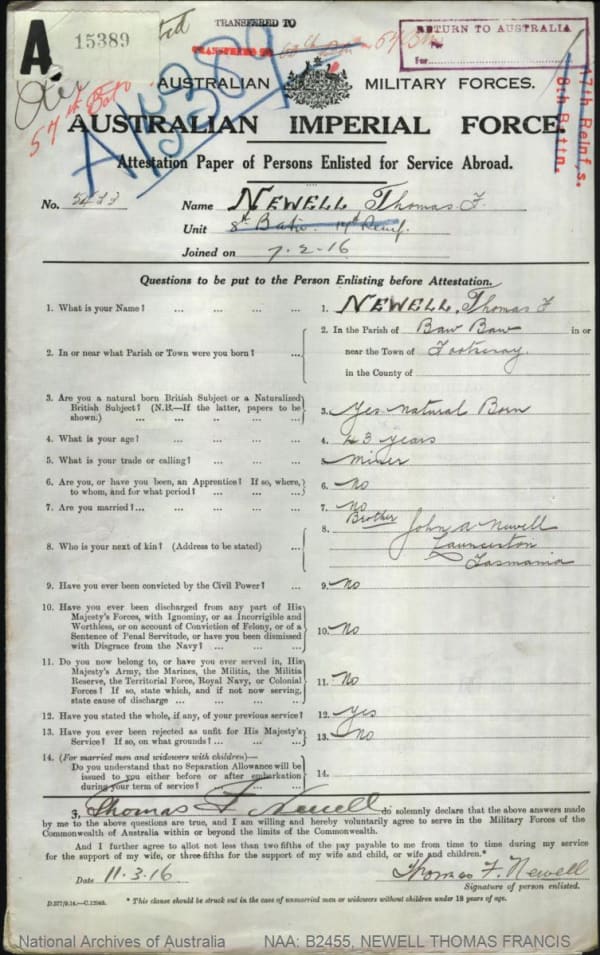 TRANSFERRED TO
A. 15389
TRANSFERRED TO 57 Bn
RETURN TO AUSTRALIA
For
57th Batn
A15389
17th Reinf,s.
8th Battn.
AUSTRALIAN MILITARY FORCES.
AUSTRALIAN IMPERIAL FORCE.
Attestation Paper of Persons Enlisted for Service Abroad.
No. Name NEWELL Thomas. F.
Unit 8th Batn. 17th Reinf.
Joined on 7.2.16
Questions to be put to the Person Enlisting before Attestation.
1. What is your Name? ... ... ... ... 1. NEWELL, Thomas F
2. In or near what Parish or Town were you born? ... 2. In the Parish of Baw Baw in or
near the Town of Footscray.
in the County of
3. Are you a natural born British Subject or a Naturalized
British Subject? (N.B.—If the latter, papers to be
shown.) ... ... ... ... ... 3. Yes natural Born
4. What is your age? ... ... ... ... 4. 43 years
5. What is your trade or calling? ... ... ... 5. Miner
6. Are you, or have you been, an Apprentice? If so, where,
to whom, and for what period? ... ... ... 6. No
7. Are you married?... ... ... ... ... 7. No
8. Who is your next of kin? (Address to be stated) ... 8. Brother John A Newell
Launceston
Tasmania
9. Have you ever been convicted by the Civil Power? ... 9. No
10. Have you ever been discharged from any part of His
Majesty's Forces, with Ignominy, or as Incorrigible and
Worthless, or on account of Conviction of Felony, or of a
Sentence of Penal Servitude, or have you been dismissed
with Disgrace from the Navy? ... ... ... 10. No
11. Do you now belong to, or have you ever served in, His
Majesty's Army, the Marines, the Militia, the Militia
Reserve, the Territorial Force, Royal Navy, or Colonial
Forces? If so, state which, and if not now serving,
state cause of discharge ... ... ... ... 11. No
12. Have you stated the whole, if any, of your previous service? 12. Yes
13. Have you ever been rejected as unfit for His Majesty's
Service? If so, on what grounds? ... ... ... 13. No
14. (For married men and widowers with children)—
Do you understand that no Separation Allowance will be
issued to you either before or after embarkation
during your term of service? ... ... ... 14.
I, Thomas F. Newell do solemnly declare that the above answers made
by me to the above questions are true, and I am willing and hereby voluntarily agree to serve in the Military Forces of the
Commonwealth of Australia within or beyond the limits of the Commonwealth.
And I further agree to allot not less than two-fifths of the pay payable to me from time to time during my service
for the support of my wife, or three-fifths for the support of my wife and child, or wife and children.*
Date 11.3.16 Thomas F. Newell
Signature of person enlisted.
D.577/9.14.—C.12945. * This clause should be struck out in the case of unmarried men or widowers without children under 18 years of age.
National Archives of Australia NAA: B2455, NEWELL THOMAS FRANCIS